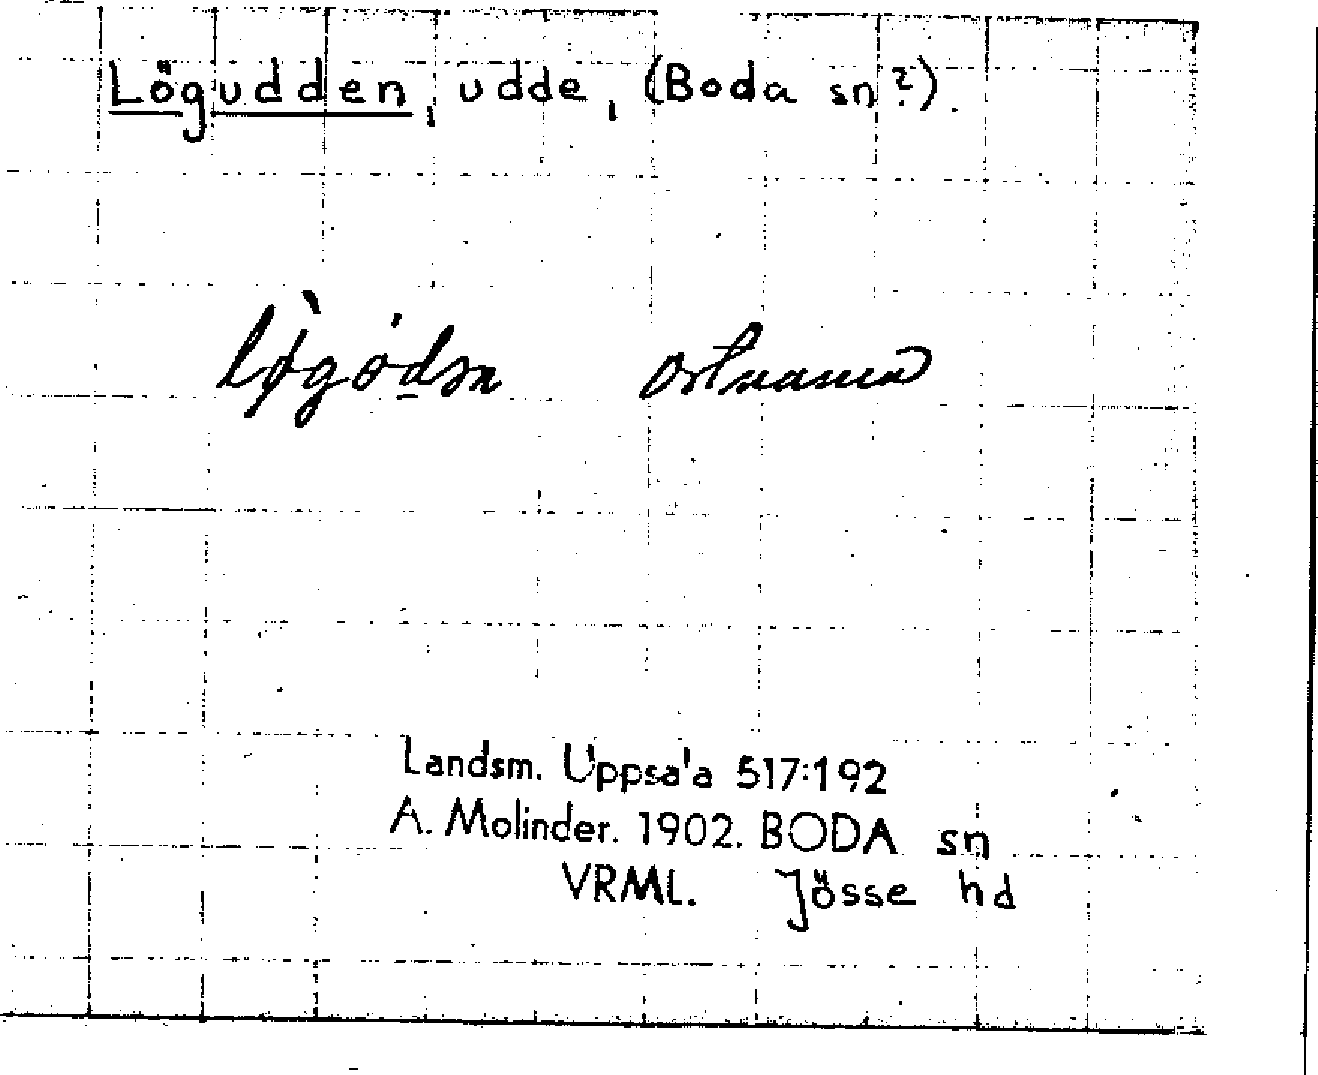 Lögudden, udde, (Boda sn?).
ortnamn
Landsm. Uppsa'a 517:192
A. Molinder. 1902. BODA sn
VRML. Jösse hd